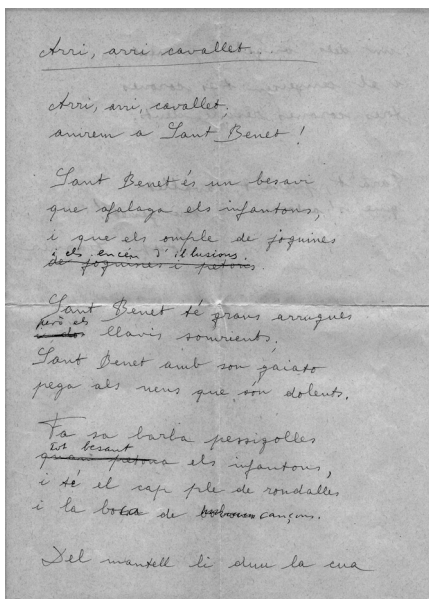 Arri, arri cavallet...
Arri, arri, cavallet.
anirem a Sant Benet !
Sant Benet és un besavi
que afalaga els infantons,
i que els omple de joguines
i els encén d'il·lusions.
de joguines i petons.
Sant Benet té grans arrugues
però els
llavis somrients;
Sant Benet amb son gaiato
pega als nens que són dolents.
Fa sa barba pessigolles
tot besant
quan petona els infantons,
i té el cap ple de rondalles
i la boca de cançons.
Del mantell li duu la cua